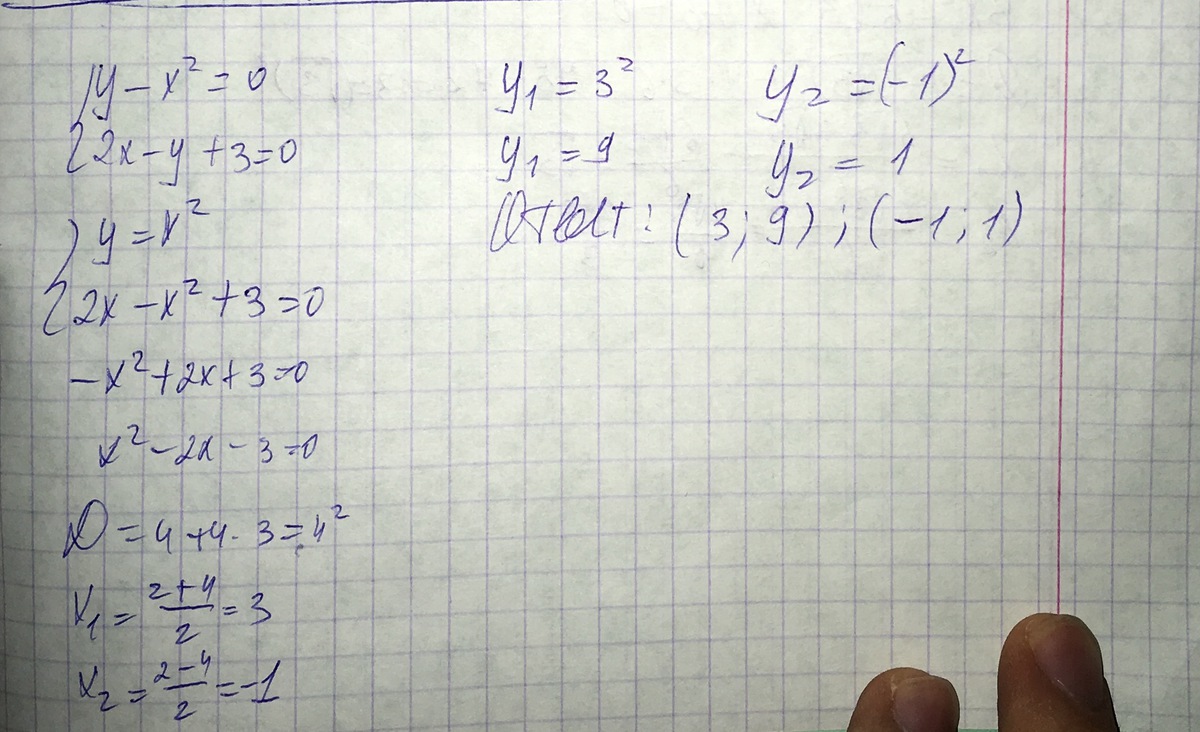 y - x² = 0
2x - y + 3 = 0
y = x²
2x - x² + 3 = 0
-x² + 2x + 3 = 0
x² - 2x - 3 = 0
D = 4 + 4 · 3 = 4²
x₁ = (2+4)/2 = 3
x₂ = (2-4)/2 = -1
y₁ = 3²
y₁ = 9
y₂ = (-1)²
y₂ = 1
Ответ: (3; 9); (-1; 1)